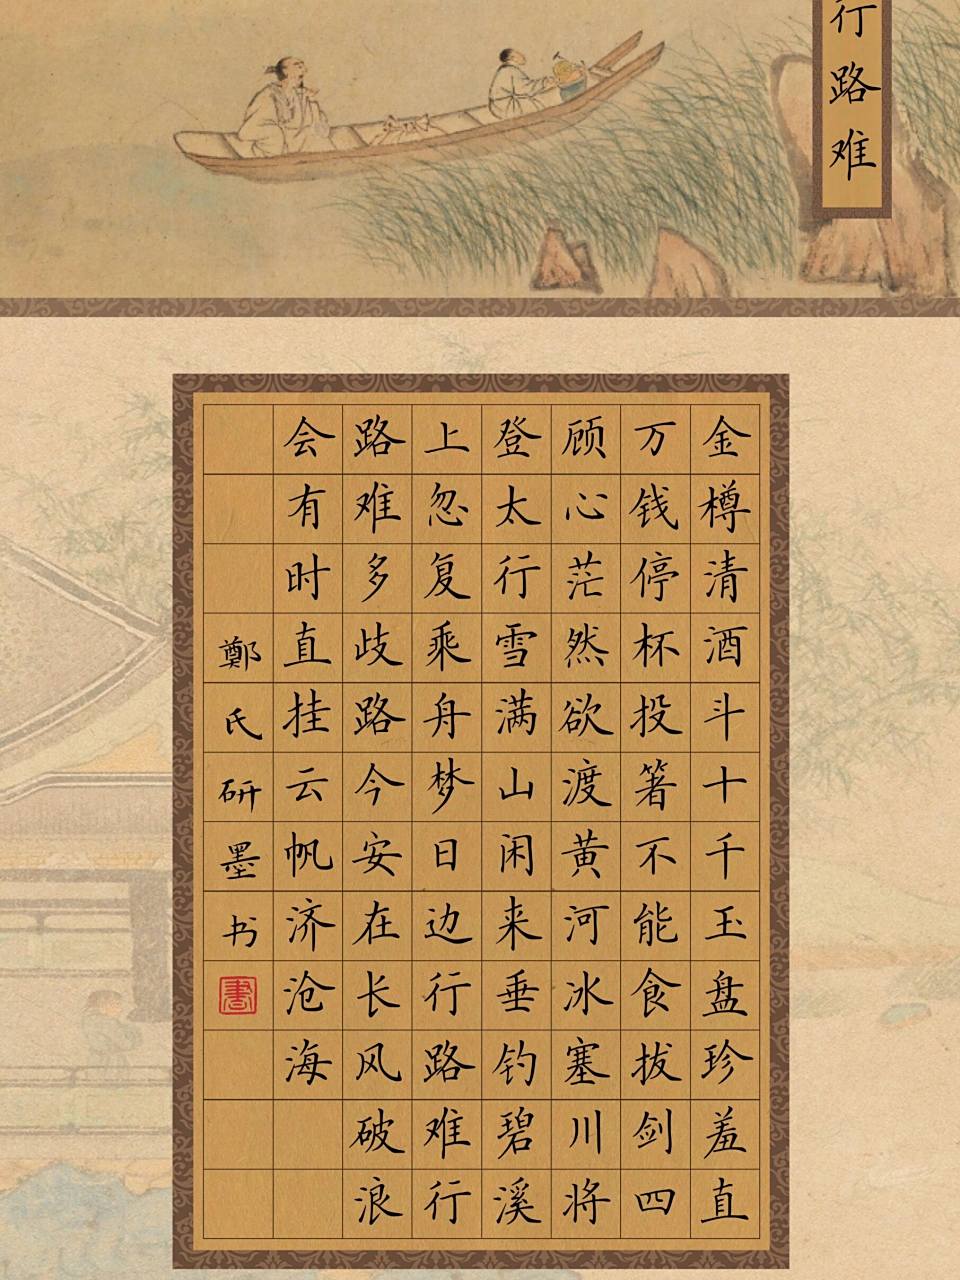 行路难
金樽清酒斗十千玉盘珍羞直
万钱停杯投箸不能食拔剑四
顾心茫然欲渡黄河冰塞川将
登太行雪满山闲来垂钓碧溪
上忽复乘舟梦日边行路难行
路难多歧路今安在长风破浪
会有时直挂云帆济沧海
鄭氏研墨书
書